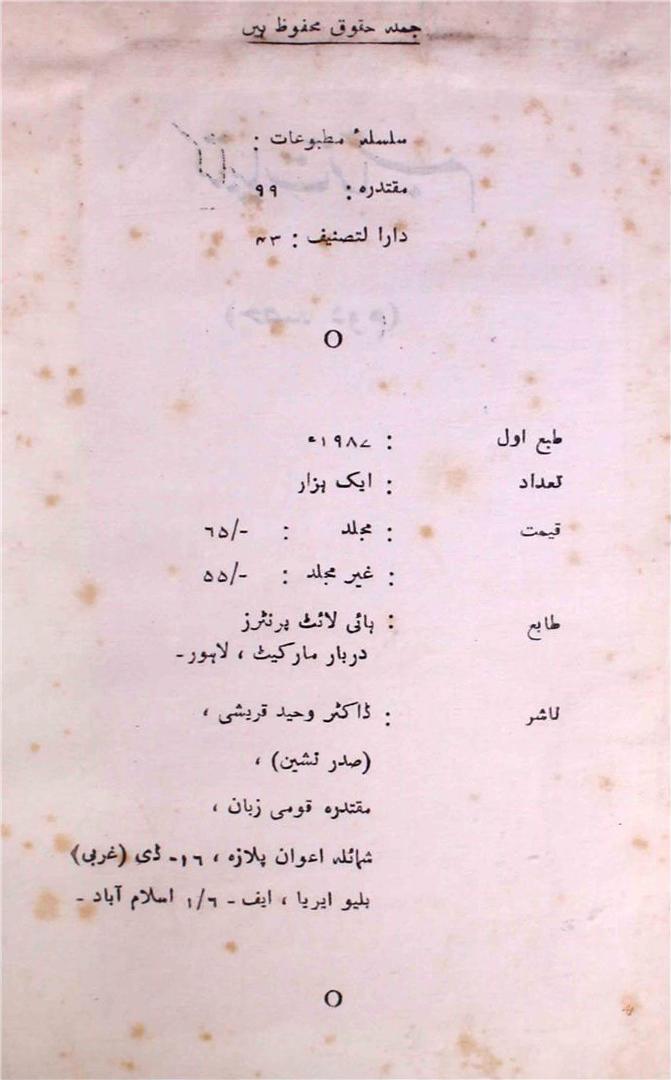 جملہ حقوق محفوظ ہیں
سلسلۂ مطبوعات :
مقتدرہ : ۹۹
دارا لتصنیف : ۴۳
O
طبع اول : ۱۹۸۷ء
تعداد : ایک ہزار
قیمت : مجلد : ۶۵/-
: غیر مجلد : ۵۵/-
طابع : ہائی لائٹ پرنٹرز
دربار مارکیٹ ، لاہور۔
ناشر : ڈاکٹر وحید قریشی ،
(صدر نشین) ،
مقتدرہ قومی زبان ،
شمائلہ اعوان پلازہ ، ۱۶- ڈی (غربی)
بلیو ایریا ، ایف - ۱/۶ اسلام آباد -
O